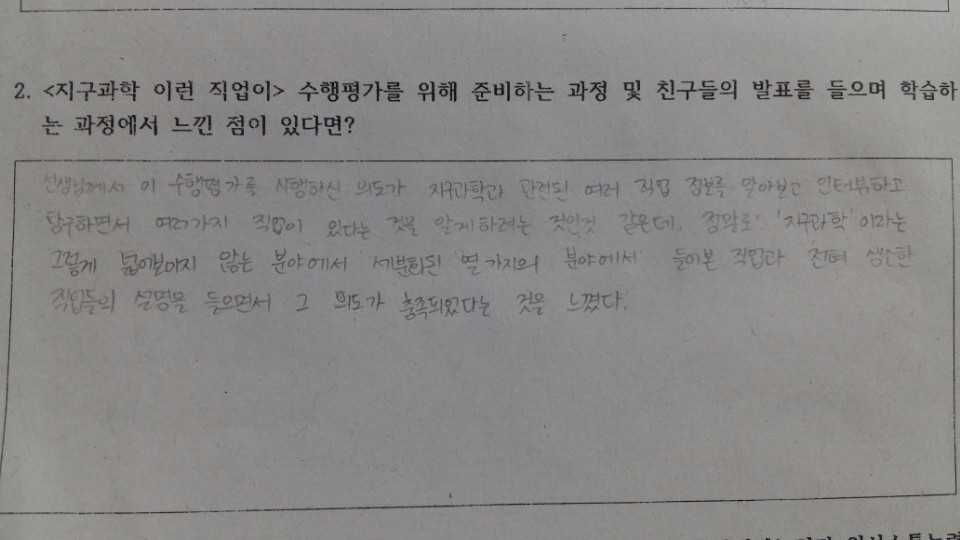 2. <지구과학 이런 직업이> 수행평가를 위해 준비하는 과정 및 친구들의 발표를 들으며 학습하
는 과정에서 느낀 점이 있다면?
선생님께서 이 수행평가를 시행하신 의도가 지구과학과 관련된 여러 직업 정보를 알아보고 인터뷰하고
탐구하면서 여러가지 직업이 있다는 것을 알게하려는 것인것 같은데, 정말로 '지구과학'이라는
그렇게 넓어보이지 않는 분야에서 세분화된 열 가지의 분야에서 들어본 직업과 전혀 생소한
직업들의 설명을 들으면서 그 의도가 충족되었다는 것을 느꼈다.